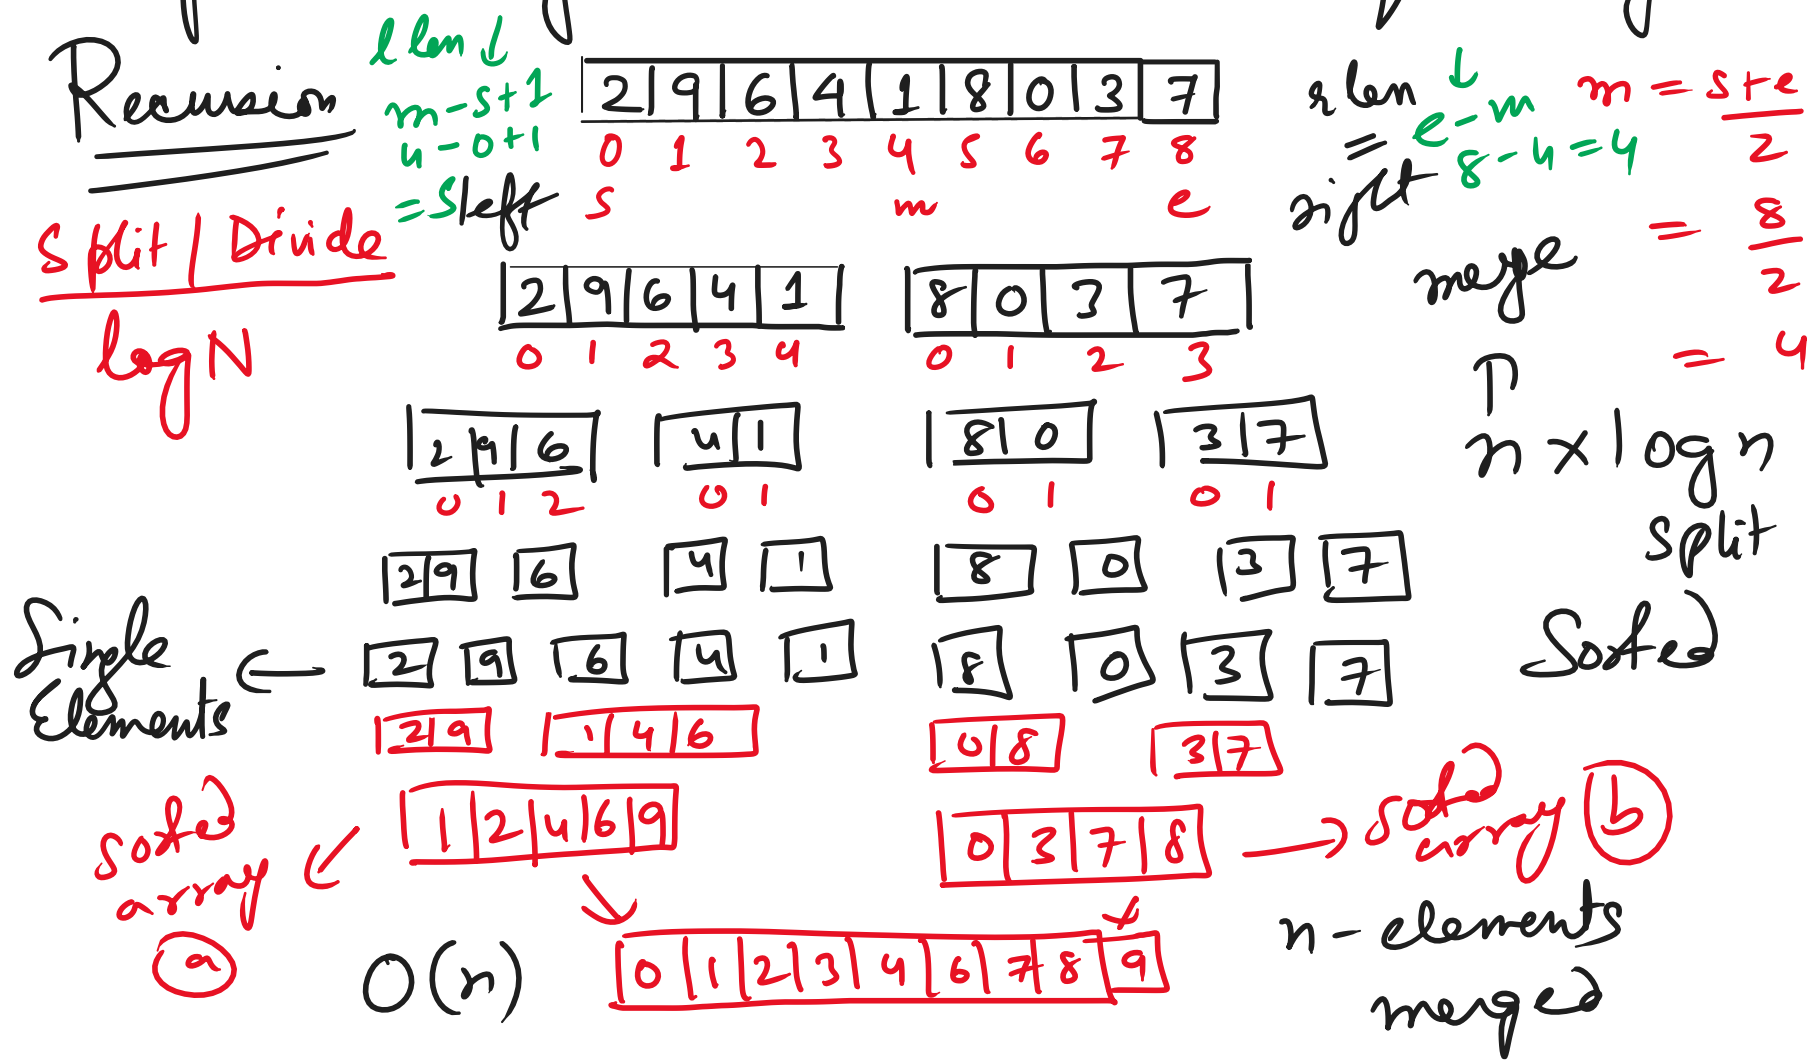 Recursion
l len ↓
m - s + 1
4 - 0 + 1
= 5 left
2 9 6 4 1 8 0 3 7
0 1 2 3 4 5 6 7 8
s m e
r len ↓
= e - m
8 - 4 = 4
right
m = s+e
2
= 8
2
= 4
Split / Divide
log N
2 9 6 4 1
0 1 2 3 4
8 0 3 7
0 1 2 3
merge
↑
n x log n
split
2 9 6
0 1 2
4 1
0 1
8 0
0 1
3 7
0 1
2 9 6 4 1 8 0 3 7
Single
Elements ←
2 9 6 4 1 8 0 3 7
Sorted
2 9 1 4 6 0 8 3 7
sorted
array
a
1 2 4 6 9
0 3 7 8
→ sorted
array b
O(n)
0 1 2 3 4 6 7 8 9
n - elements
merged